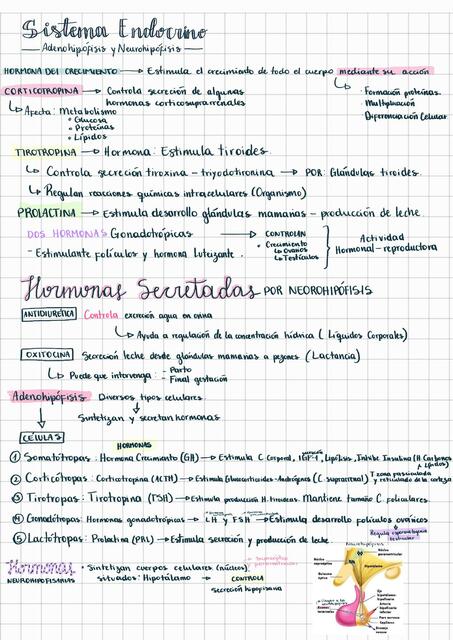 Sistema Endocrino
Adenohipófisis y Neurohipófisis
HORMONA DEL CRECIMIENTO → Estimula el crecimiento de todo el cuerpo mediante su acción
Formación proteínas.
Multiplicación
Diferenciación Celular
CORTICOTROPINA → Controla secreción de algunas
hormonas corticosuprarrenales
Afecta: Metabolismo
• Glucosa
• Proteínas
• Lípidos
TIROTROPINA → Hormona: Estimula tiroides.
Controla secreción tiroxina - triyodotironina → POR: Glándulas tiroides.
Regulan reacciones químicas intracelulares (Organismo)
PROLACTINA → Estimula desarrollo glándulas mamarias - producción de leche.
DOS HORMONAS Gonadotrópicas → CONTROLAN
• Crecimiento
Ovarios
Testículos
Actividad
Hormonal-reproductora
- Estimulante folículos y hormona luteizante.
Hormonas Secretadas POR NEOROHIPÓFISIS
ANTIDIURÉTICA Controla excreción agua en orina
Ayuda a regulación de la concentración hídrica (Líquidos Corporales)
OXITOCINA Secreción leche desde glándulas mamarias a pezones (Lactancia)
Puede que intervenga: - Parto
- Final gestación
Adenohipófisis Diversos tipos celulares.
Sintetizan y secretan hormonas
CÉLULAS
HORMONAS
① Somatótropas: Hormona Crecimiento (GH) → Estimula C. Corporal, IGF-1, Lipólisis, Inhibe Insulina (H Carbonos y Lípidos)
② Corticótropas: Corticotropina (ACTH) → Estimula Glucocorticoides-Andrógenos (C. suprarrenal) T zona fasciculada y reticulada de la corteza
③ Tirotropas: Tirotropina (TSH) → Estimula producción H. tiroideas. Mantiene tamaño C. foliculares.
④ Gonadótropas: Hormonas gonadotrópicas → LH y FSH → Estimula desarrollo folículos ováricos
Regula espermatogenia testicular
⑤ Lactótropas: Prolactina (PRL) → Estimula secreción y producción de leche.
Hormonas
NEUROHIPOFISARIAS
• Sintetizan cuerpos celulares (núcleos)
situados: Hipotálamo → CONTROLA
secreción hipofisaria
Neurohipófisis
Hipotálamo